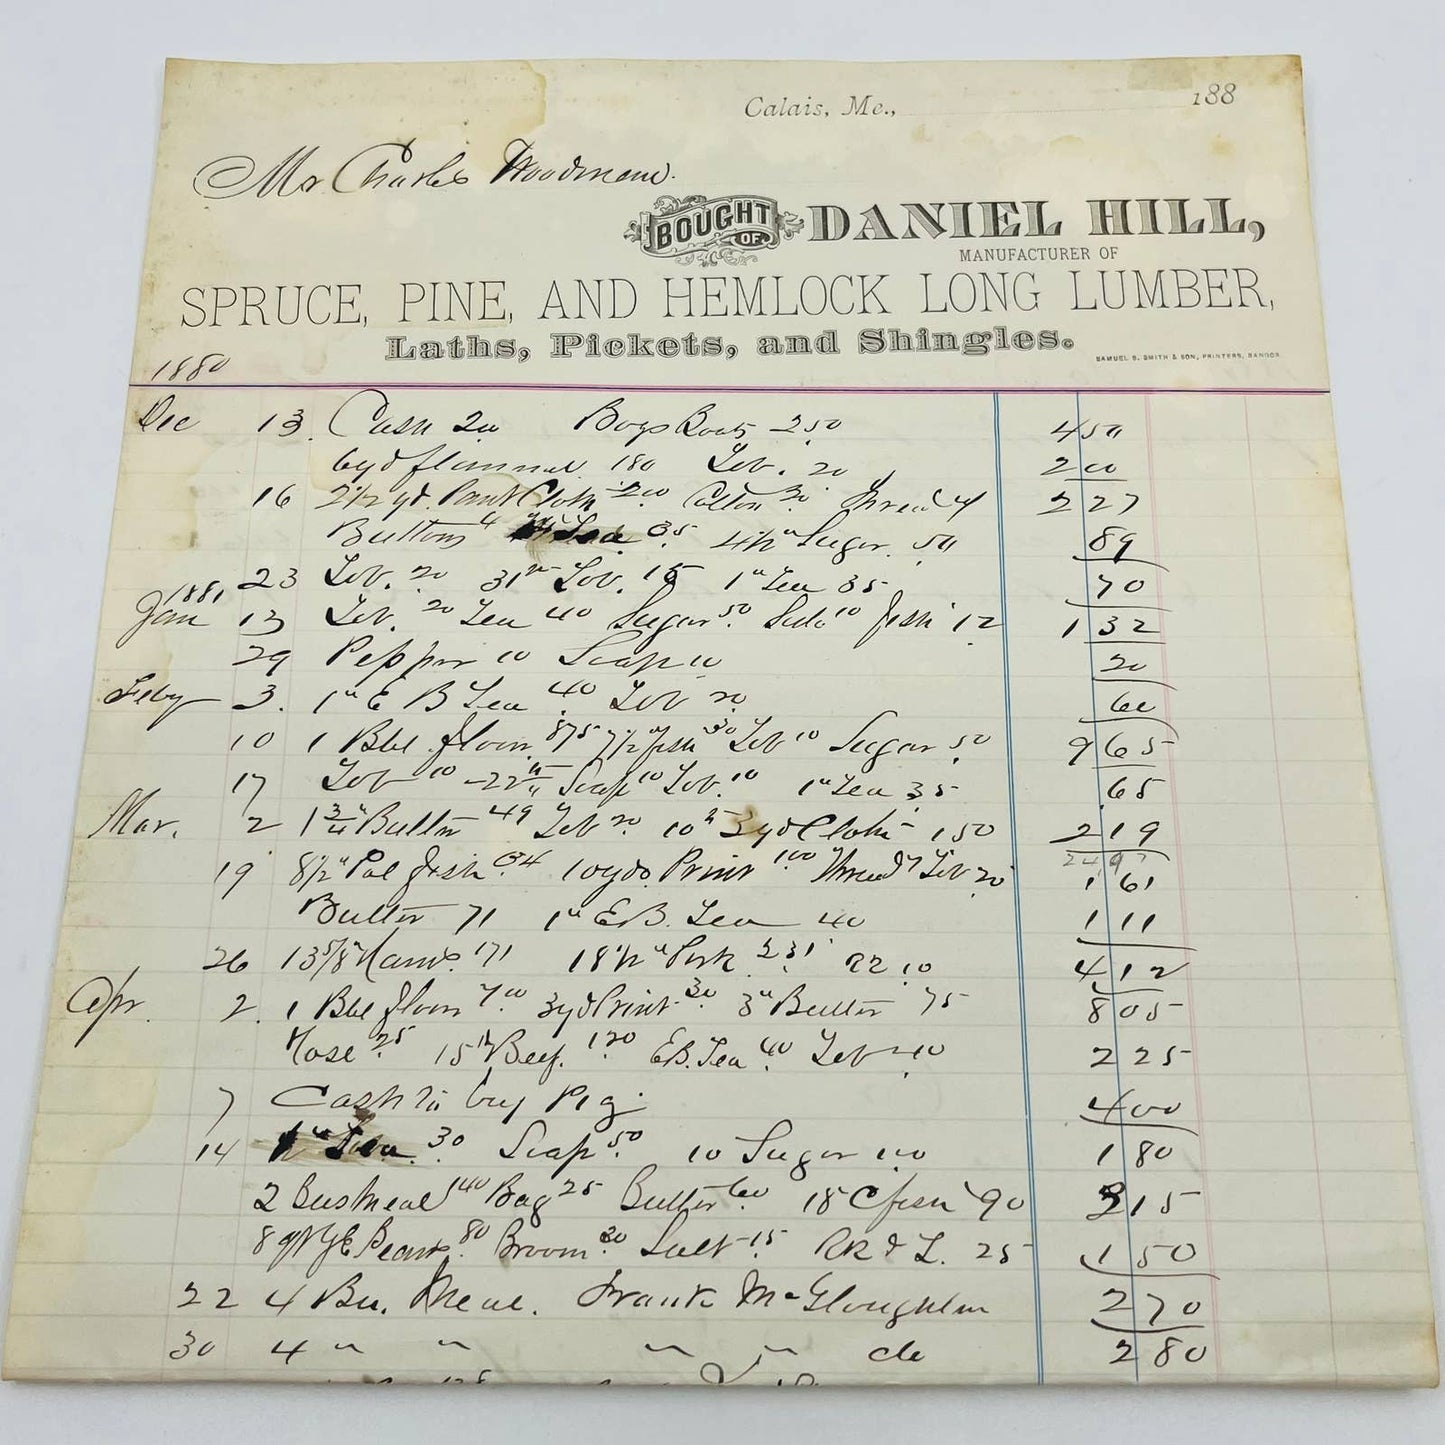 Calais, Me., 188
Mr Charles Woodman.
BOUGHT OF DANIEL HILL,
MANUFACTURER OF
SPRUCE, PINE, AND HEMLOCK LONG LUMBER,
Laths, Pickets, and Shingles.
SAMUEL S. SMITH & SON, PRINTERS, BANGOR
1880
Dec 13. Cash 200 Boys Boots 250 450
6yd flannel 180 Tob. 20 200
16 2 1/2 yd. Pant Cloth 200 Cotton 20 Thread 4 227
Buttons 4 Tea 35 Sugar. 50 89
23 Tob. 20 Tob. 15 1" Tea 35 70
1881
Jan 13 Tob. 20 Tea 40 Sugar 50 10 fish 12 1 32
29 Pepper 10 Soap 10 20
Feby 3. 1" E B Tea 40 Tob 20 60
10 1 Bbl flour 875 7 1/2 fish 30 Tob 10 Sugar 50 9 65
17 Tob 10 Soap 10 Tob. 10 1" Tea 35 65
Mar. 2 1 3/4" Butter 49 Tob 20 3yd Cloth 150 2 19
24 97
19 8 1/2" Pol fish 34 10yds. Print 100 Thread 7 Tob 20 1 61
Butter 71 1" E.B. Tea 40 1 11
26 13 5/8 Ham. 171 18 1/2" Pork 231 10 4 12
Apr. 2. 1 Bbl flour 700 3yd Print 30 3" Butter 75 8 05
Hose 25 15 Beef. 120 E.B. Tea 40 Tob 40 2 25
7 Cash to buy Pig. 4 00
14 Tea 30 Soap 50 10 Sugar 100 1 80
2 Bus meal 140 Bag 25 Butter 60 18 C fish 90 3 15
8 qt Y E Beans 80 Broom 30 Salt 15 RR & L. 25 1 50
22 4 Bu. Meal. Frank McGloughlin 2 70
30 4 " " " " do 2 80